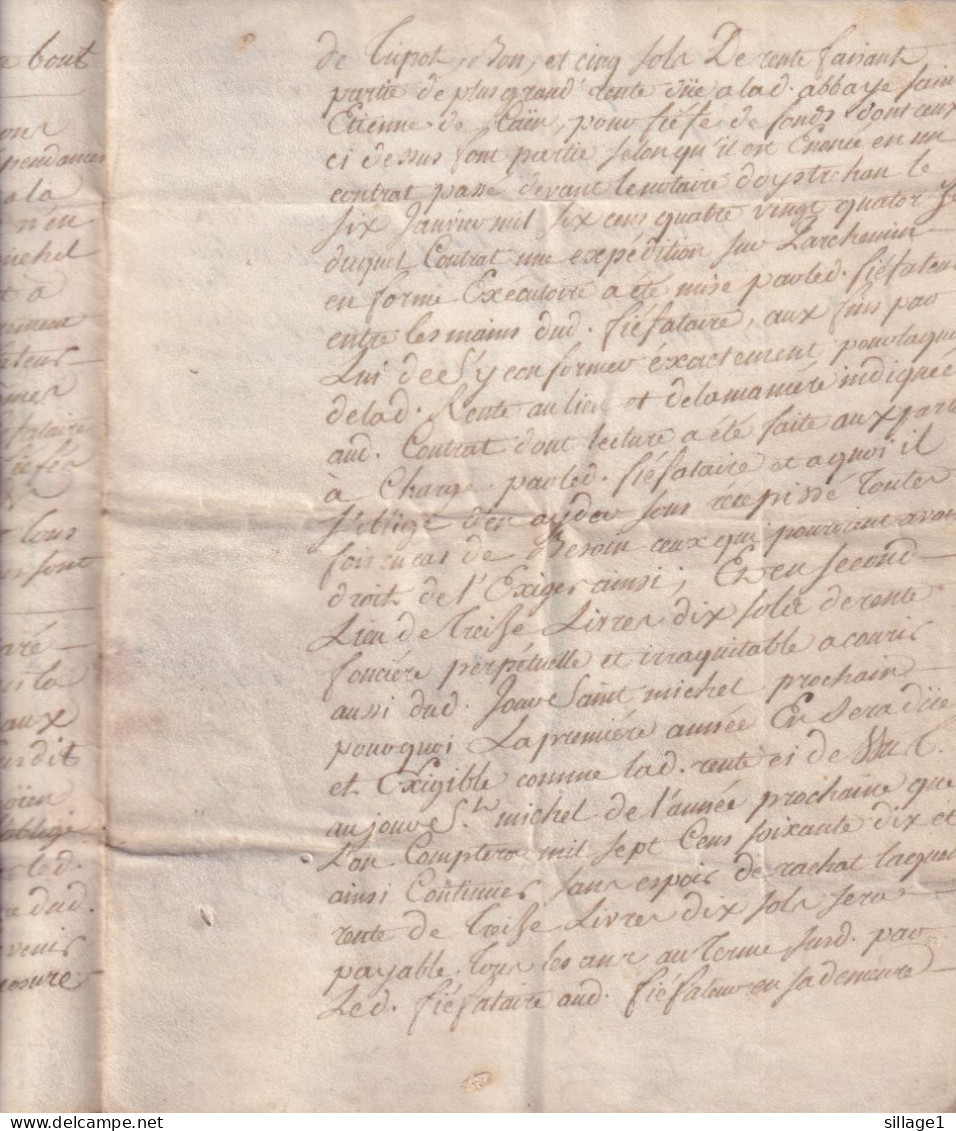 e bout
ons
pendances
a la
n'en
michel
t à
ateurs
fataire
fiéfés
t tous
sont
aré
la
aux
urdit
oblige
led.
dud.
venir
masure
de tripot, Bon, et cinq sols De rente faisant
partie de plus grand rente düe a lad. abbaye Sain
Etienne de Caën, pour fiéfe de fonds dont ceux
ci dessus font partie selon qu'il est Enoncé en un
contrat passé devant le notaire doystrehan le
six Janvier mil six cens quatre vingt quator ze
duquel Contrat une expédition sur Parchemin
en forme Executoire a été mise par led. fiéfateur
entre les mains dud. fiéfataire, aux fins par
Lui de S'y conformer éxactement pour laque
de lad. Rente au lieu et de la manière indiquée
aud. Contrat dont lecture a été faite aux parti
à Charge par led. fiéfataire et a quoi il
s'oblige d'en ayder sous récepissé Toutes
fois en cas de Besoin ceux qui pouroient avoir
droit de l'Exiger ainsi; Et en second
Lieu de Treisse Livres dix sols de rente
foncière perpétuelle et irraquitable a courir
aussi dud. Jour Saint michel prochain
pourquoi La première année En sera düe
et Exigible comme lad. rente ci de
au jour St. michel de l'année prochaine que
L'on Comptera mil sept Cens soixante dix et
ainsi Continuer sans espoir de rachat laquel
rente de Treisse Livres dix sols sera
payable tous les ans au Terme susd. par
Led. fiéfataire aud. fiéfateur en sa demeure
sillage1